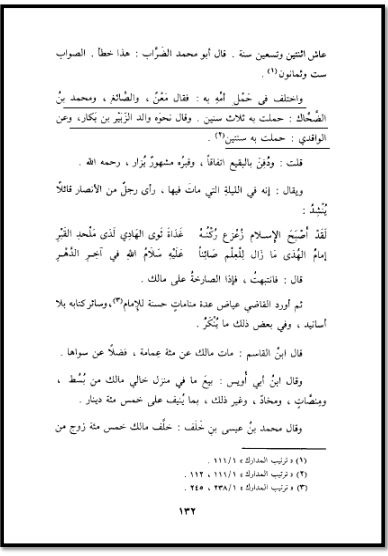 عاش اثنتين وتسعين سنة . قال أبو محمد الضَّرَّاب : هذا خطأ . الصواب
ست وثمانون(١) .
واختلف في حَمْلِ أمِّه به : فقال مَعْنٌ ، والصَّائغ ، ومحمد بنُ
الضَّحَّاك : حملت به ثلاث سنين . وقال نحوَه والد الزُّبَيْر بن بَكَّار، وعن
الواقدي : حملت به سنتين(٢) .
قلت : ودُفِنَ بالبقيع اتفاقاً ، وقبرُه مشهورٌ يُزار ، رحمه الله .
ويقال : إنه في الليلةِ التي ماتَ فيها ، رأى رجلٌ من الأنصار قائلاً
يُنْشِدُ :
لَقَدْ أَصْبَحَ الإِسلام زُعْزِعَ رُكْنُهُ غَدَاةَ ثَوى الهَادِي لَدَى مَلْحَدِ القَبْرِ
إمامُ الهُدَى مَا زَال لِلْعِلْمِ صَائِناً عَلَيْهِ سَلَامُ اللهِ في آخِرِ الدَّهْرِ
قال : فانتبهتُ ، فإذا الصارخةُ على مالك .
ثم أورد القاضي عياض عدة مناماتٍ حسنة للإمام(٣)،وسائر كتابه بلا
أسانيد ، وفي بعض ذلك ما يُنْكَرُ .
قال ابنُ القاسم : مات مالك عن مئة عِمامة ، فضلاً عن سواها .
وقال ابنُ أبي أُويس : بيعَ ما في منزل خالي مالك من بُسُطٍ ،
ومِنصَّاتٍ ، ومخادَّ ، وغير ذلك ، بما يُنِيف على خمس مئة دينار .
وقال محمد بنُ عيسى بن خَلَف : خلَّف مالك خمس مئة زوج من
(١) « ترتيب المدارك » ١١١/١ .
(٢) « ترتيب المدارك » ١١١/١ ، ١١٢ .
(٣) « ترتيب المدارك » ٢٣٨/١ ، ٢٤٥ .
١٣٢